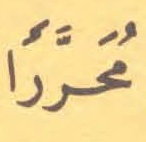 مُحَرَّرًا